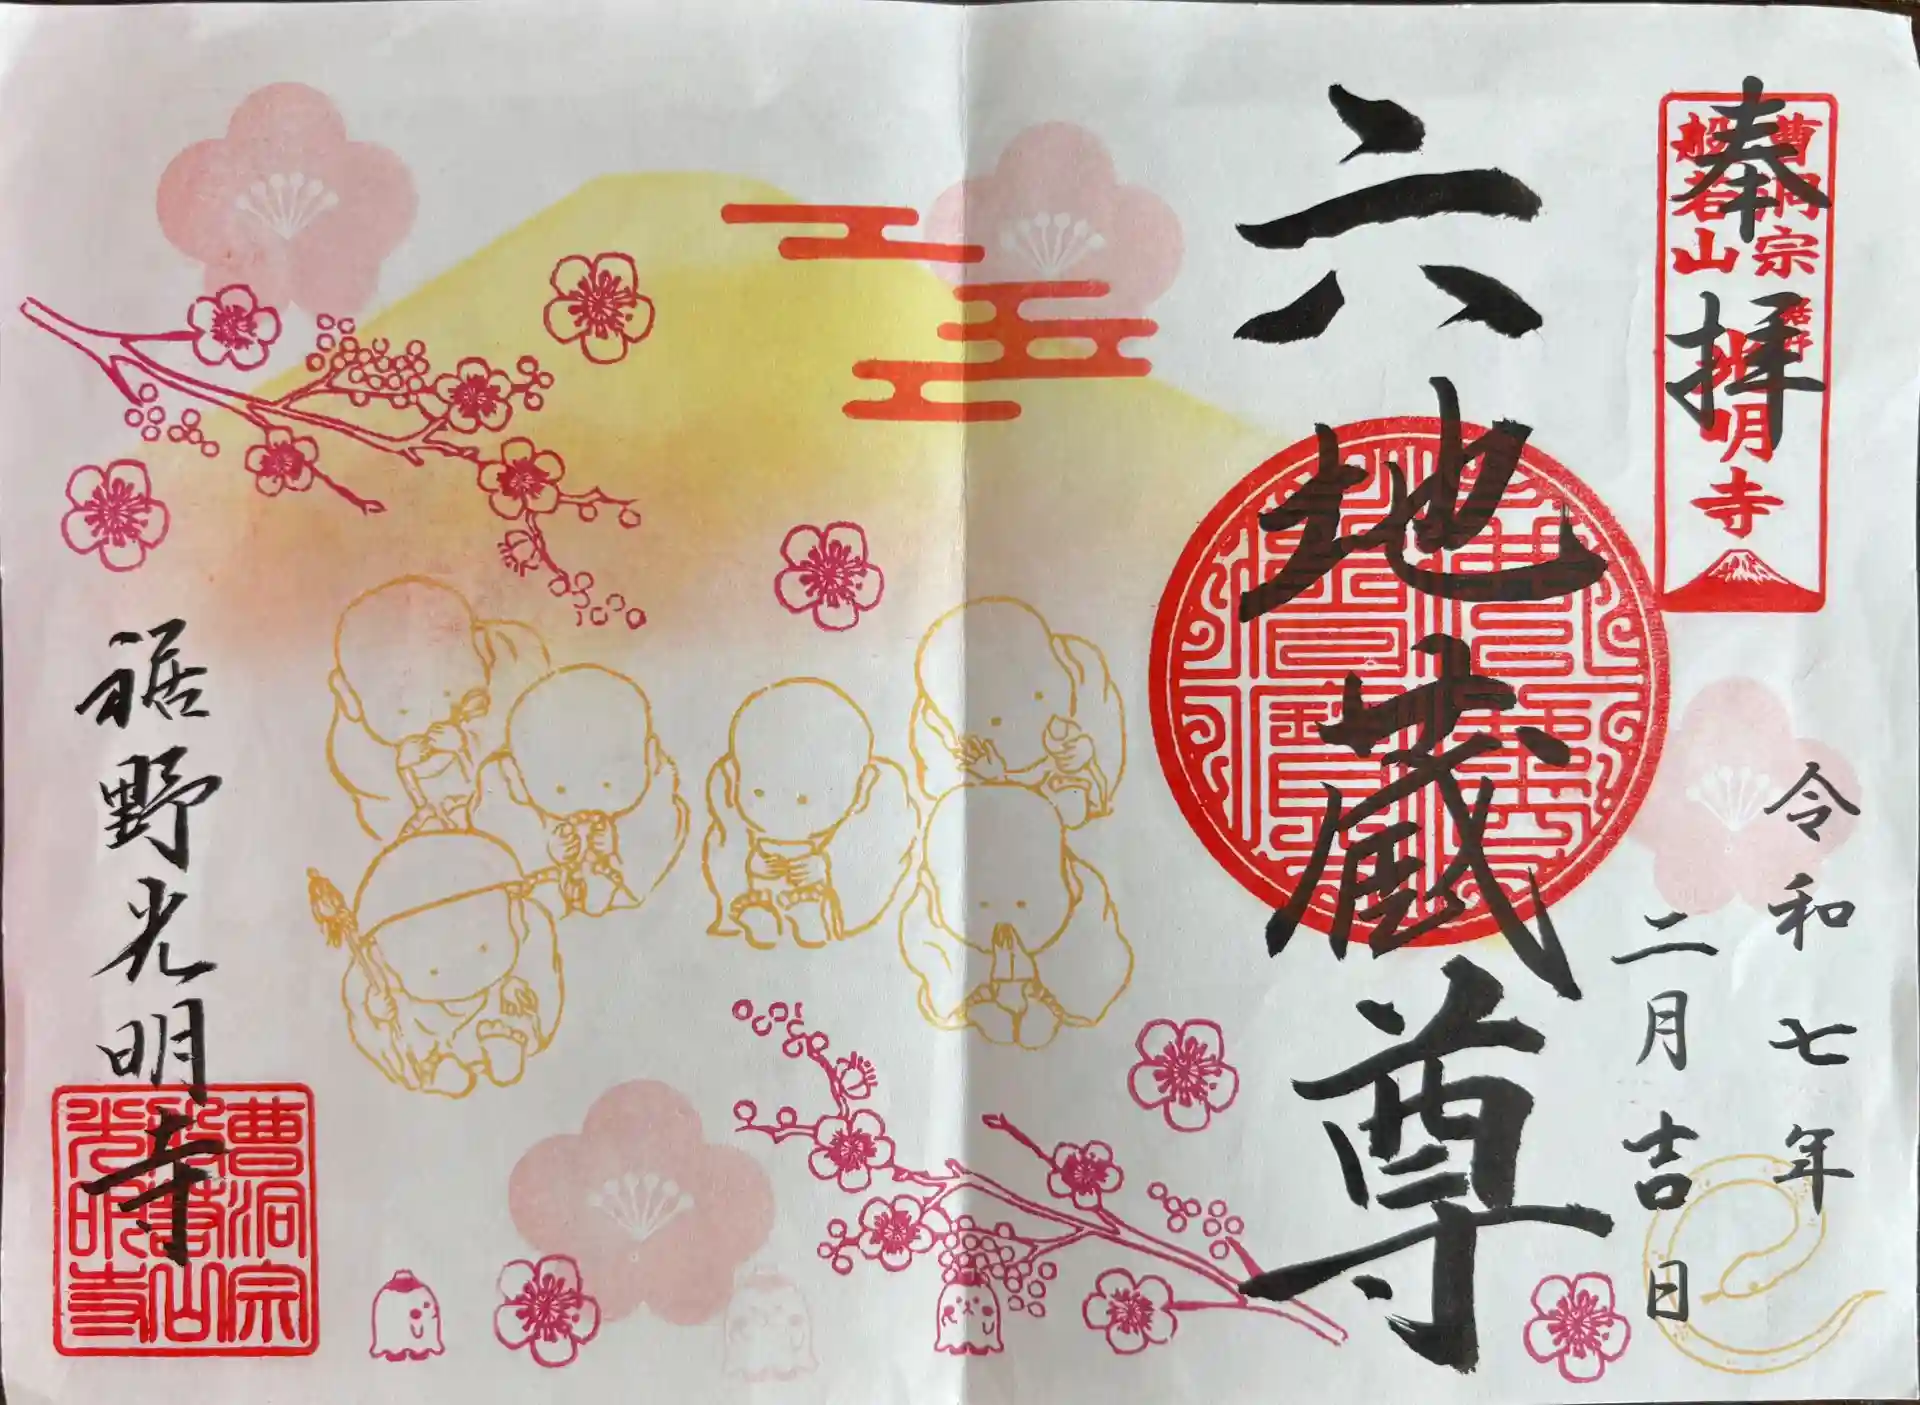 奉拝
曹洞宗
般若山
明寺
令和七年
二月吉日
六地蔵尊
裾野光明寺
曹洞宗
般若山
光明寺